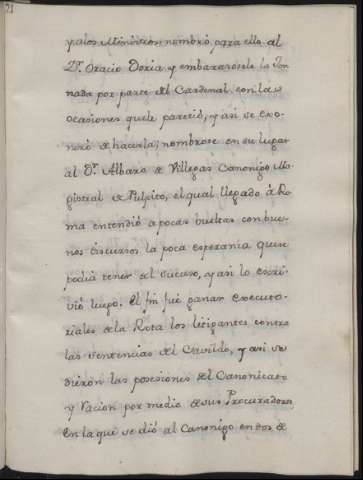 y a los Ministros nombró para ello al
Dr. Oracio Doria y embarazosele la Jor
nada por parte del Cardenal con las
ocasiones que le pareció, y asi se exo-
neró de hacerla; nombrose en su lugar
al Dr. Albaro de Villegas Canonigo Ma-
gistral de Pulpito, el qual llegado á Ro
ma entendió a pocas bueltas con bue-
nos discursos la poca esperanza que se
podia tener del suceso, y asi lo escri-
vió luego. El fin fué ganar executo-
riales de la Rota los litigantes contra
las sentencias del Cavildo, y asi se
dieron las posesiones del Canonicato
y Racion por medio de sus Procuradores
En la que se dió al Canonigo en dos de